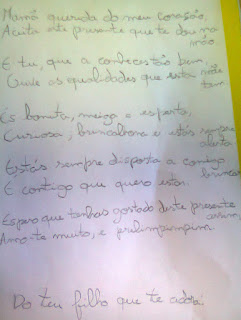 Mamã querida do meu coração,
Aceita este presente que te dou na
mão
E tu, que a conheces tão bem,
Ouve as qualidades que esta mãe
tem.
És bonita, meiga e esperta,
Curiosa, brincalhona e estás sempre
alerta.
Estás sempre disposta a comigo
brincar
E contigo que quero estar.
Espero que tenhas gostado deste presente
assim,
Amo-te muito, e perlimpimpim.
Do teu filho que te adora